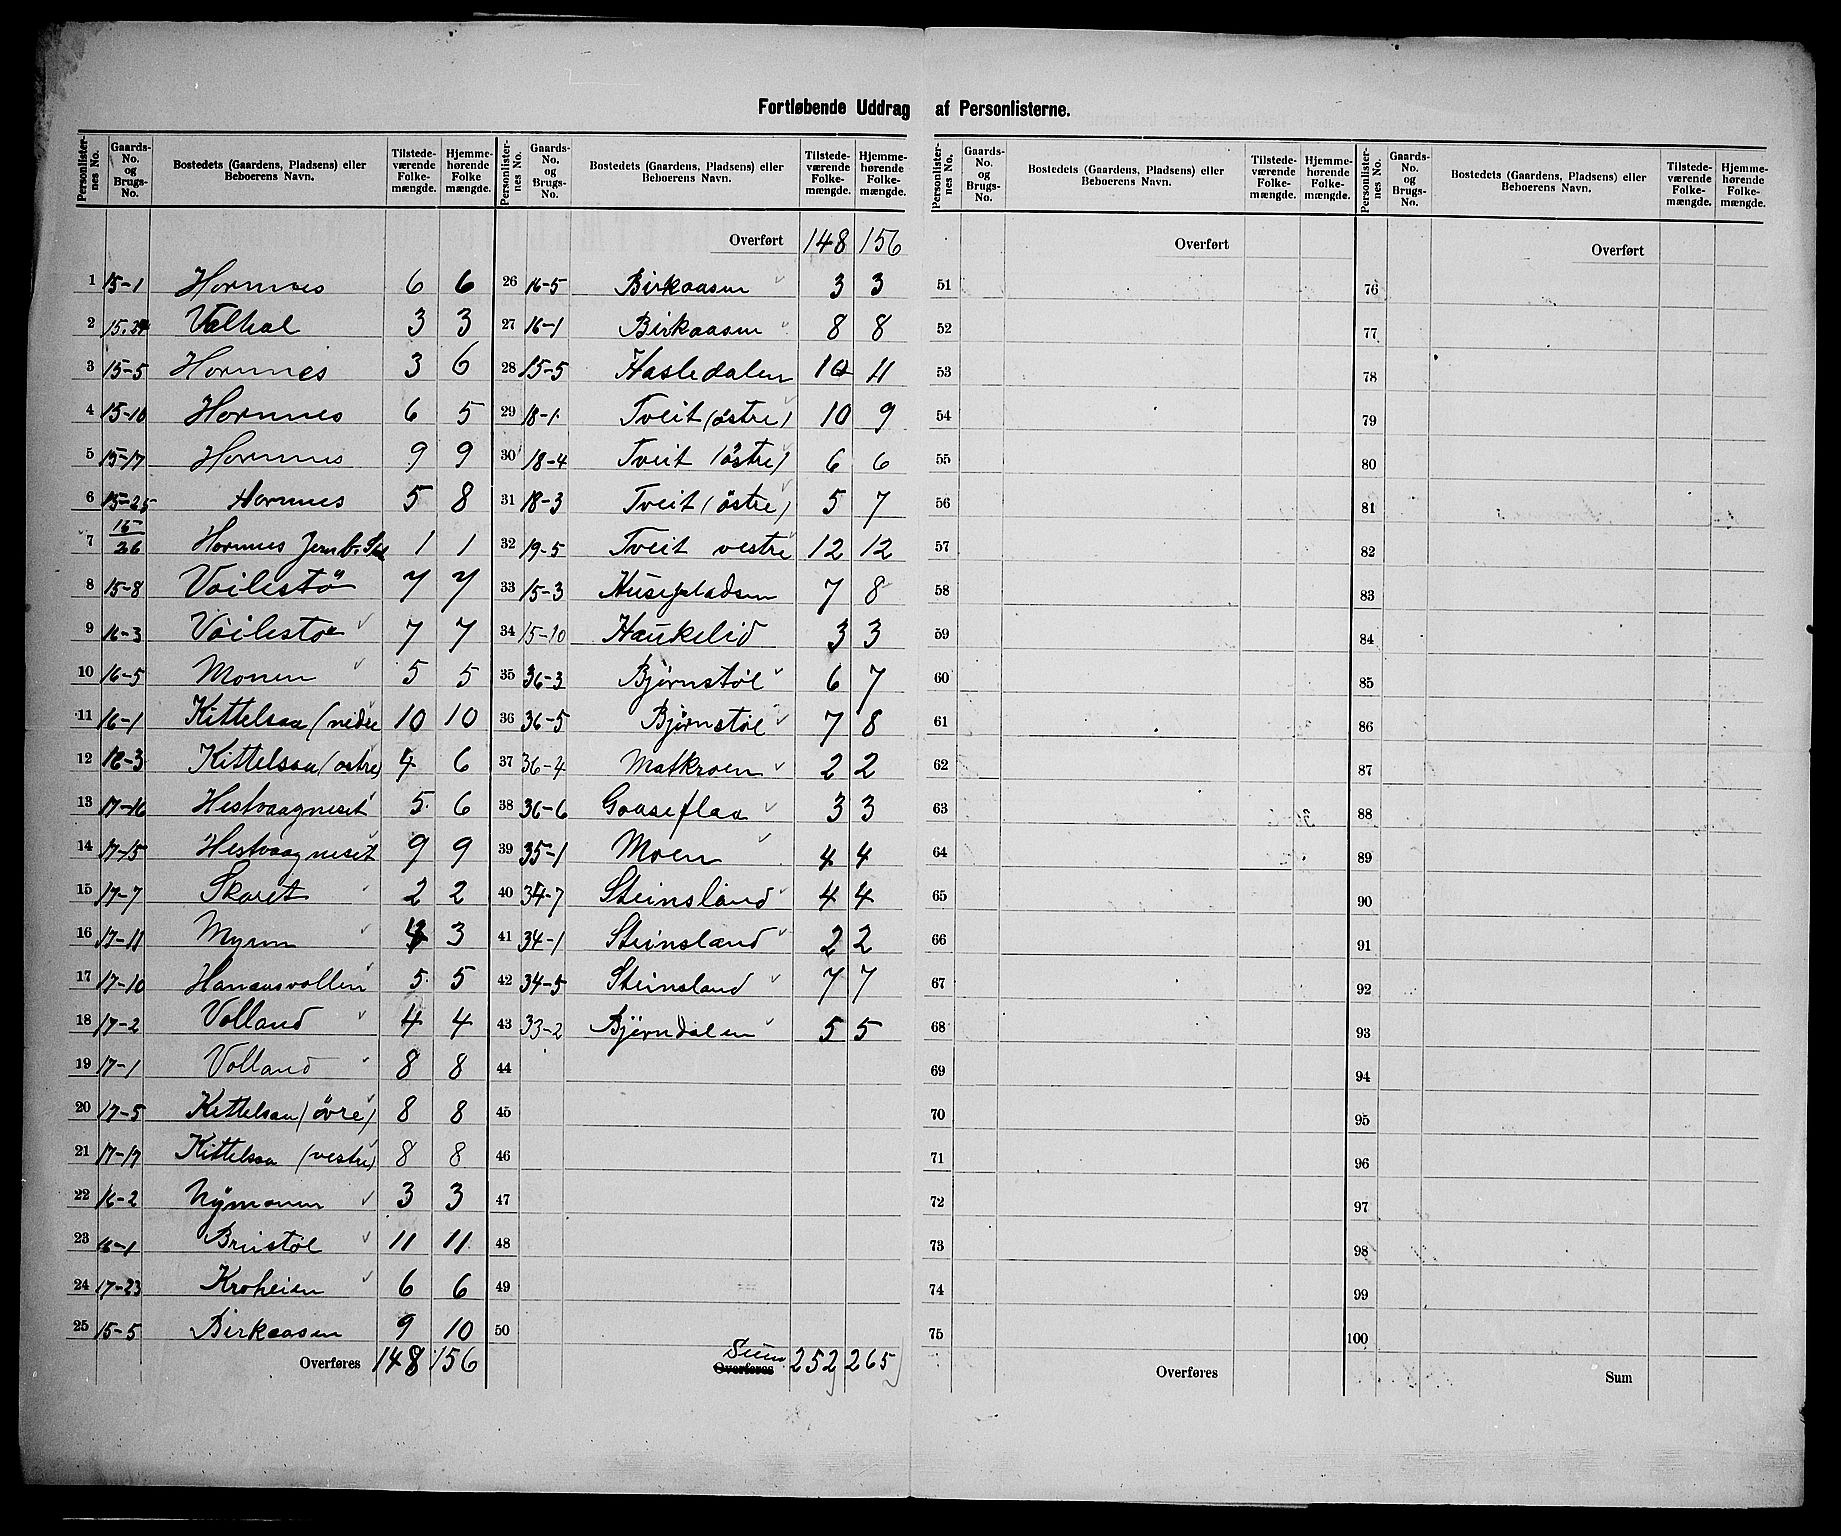 Fortløbende Uddrag af Personlisterne.
Personlisternes No. | Gaards-No. og Brugs-No. | Bostedets (Gaardens, Pladsens) eller Beboerens Navn. | Tilstedeværende Folkemængde. | Hjemmehørende Folkemængde.
1 15-1 Hornnes 6 6
2 15.24 Valhal 3 3
3 15-5 Hornnes 3 6
4 15-10 Hornnes 6 5
5 15-17 Hornnes 9 9
6 15-25 Hornnes 5 8
7 15/26 Hornnes Jernb. St. 1 1
8 15-8 Voilestö 7 7
9 16-3 Voilestö 7 7
10 16-5 Monen 5 5
11 16-1 Kittelsaa (nedre 10 10
12 16-3 Kittelsaa (østre) 4 6
13 17-16 Hestvaagneset 5 6
14 17-15 Hestvaagneset 9 9
15 17-7 Skaret 2 2
16 17-11 Myren 4 3
17 17-10 Hanausvollen 5 5
18 17-2 Volland 4 4
19 17-1 Volland 8 8
20 17-5 Kittelsaa (övre) 8 8
21 17-17 Kittelsaa (vestre) 8 8
22 16-2 Nymonen 3 3
23 16-1 Brustöl 11 11
24 17-23 Kroheien 6 6
25 15-5 Birkaasen 9 10
Overføres 148 156
Personlisternes No. | Gaards-No. og Brugs-No. | Bostedets (Gaardens, Pladsens) eller Beboerens Navn. | Tilstedeværende Folkemængde. | Hjemmehørende Folkemængde.
Overført 148 156
26 16-5 Birkaasen 3 3
27 16-1 Birkaasen 8 8
28 15-5 Hasledalen 10 11
29 18-1 Tveit (østre) 10 9
30 18-4 Tveit (östre) 6 6
31 18-3 Tveit (östre) 5 7
32 19-5 Tveit vestre 12 12
33 15-3 Husepladsen 7 8
34 15-10 Haukelid 3 3
35 36-3 Bjørnstöl 6 7
36 36-5 Bjørnstöl 7 8
37 36-4 Matkroen 2 2
38 36-6 Gaaseflaa 3 3
39 35-1 Moen 4 4
40 34-7 Steinsland 4 4
41 34-1 Steinsland 2 2
42 34-5 Steinsland 7 7
43 33-2 Bjørndalen 5 5
44
45
46
47
48
49
50
Overføres Sum 252 265
Personlisternes No. | Gaards-No. og Brugs-No. | Bostedets (Gaardens, Pladsens) eller Beboerens Navn. | Tilstedeværende Folkemængde. | Hjemmehørende Folkemængde.
Overført
51
52
53
54
55
56
57
58
59
60
61
62
63
64
65
66
67
68
69
70
71
72
73
74
75
Overføres
Personlisternes No. | Gaards-No. og Brugs-No. | Bostedets (Gaardens, Pladsens) eller Beboerens Navn. | Tilstedeværende Folkemængde. | Hjemmehørende Folkemængde.
Overført
76
77
78
79
80
81
82
83
84
85
86
87
88
89
90
91
92
93
94
95
96
97
98
99
100
Sum